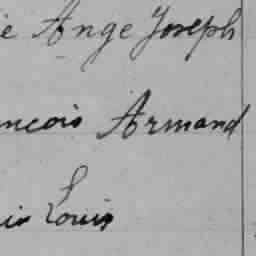 e Ange Joseph
ncois Armand
is Louis